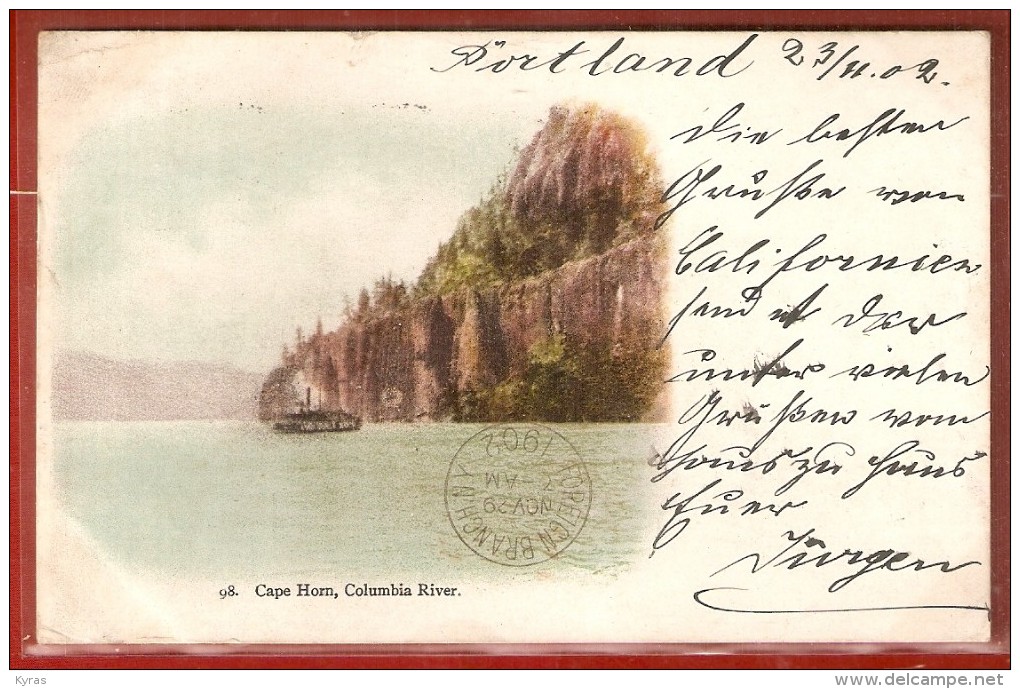 Portland 23/11.02.
Die besten
Grüße von
Californien
sendet der
unter vielen
Grüßen vom
Haus zu Haus
Euer
Jürgen
FOREIGN BRANCH
NOV 29
7-AM
1902
98. Cape Horn, Columbia River.
Kyras
delcampe.net